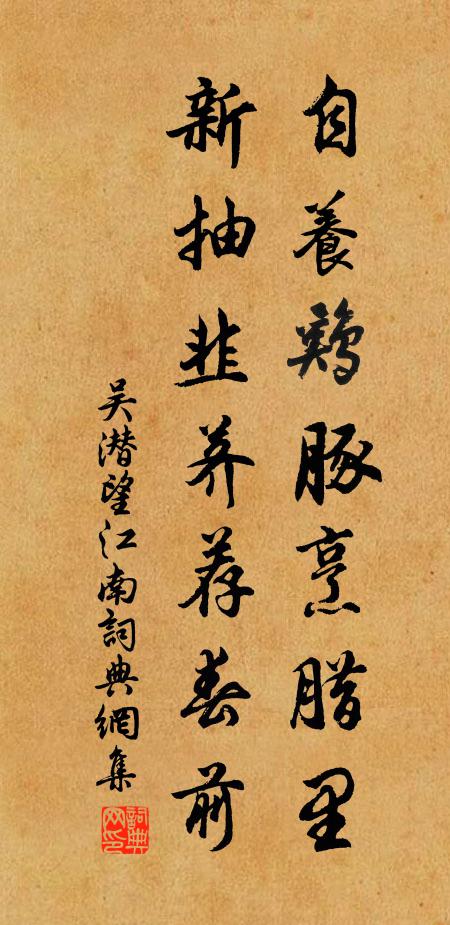 自養鷄豚烹腊里
新抽韭荠荐春前
吴潜望江南詞典網集
詞典網印